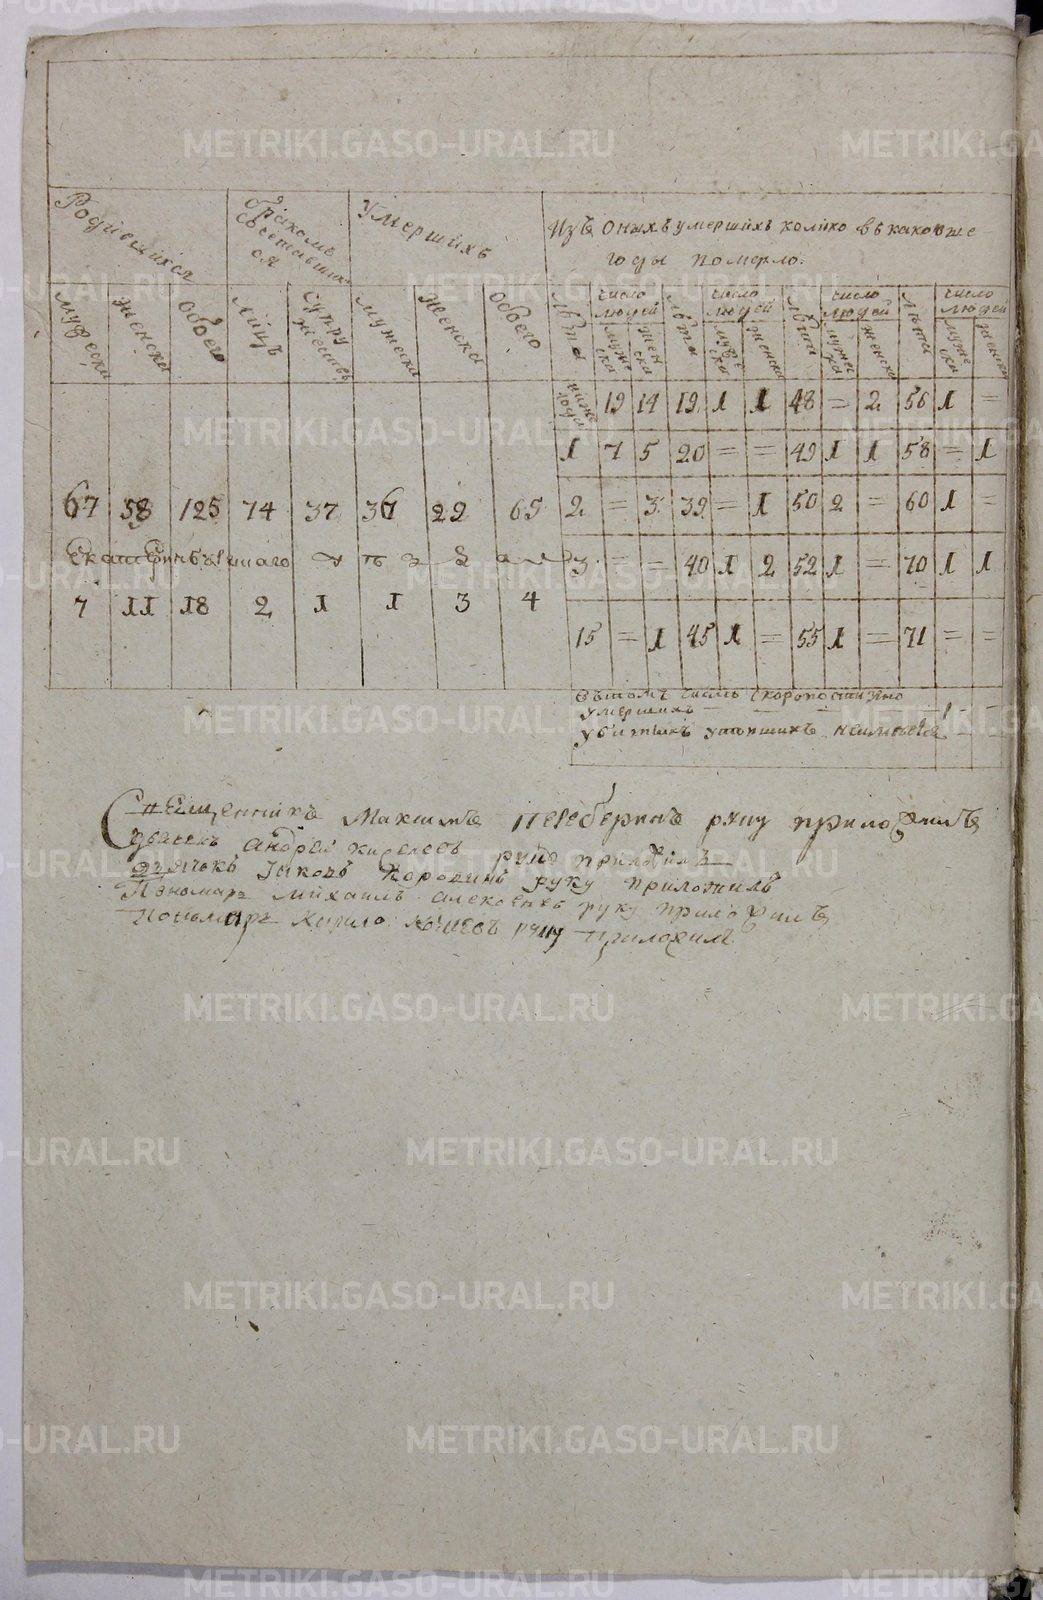 Родившихся
браком сочетавших ся
Умершихъ
Изъ оныхъ умершихъ колико въ каковые
годы померло:
мужеска женска обоего лицъ супружествъ мужеска женска обоего
лѣта число людей лѣта число людей лѣта число людей лѣта число людей
мужеска женска мужеска женска мужеска женска мужеска женска
ниже года 19 14 19 1 1 48 = 2 56 1 =
1 7 5 20 = = 49 1 1 58 = 1
67 58 125 74 37 36 29 65 2 = 3 39 = 1 50 2 = 60 1 =
3 = = 40 1 2 52 1 = 70 1 1
7 11 18 2 1 1 3 4
15 = 1 45 1 = 55 1 = 71 = =
Въ томъ числѣ скоропостижно
умершихъ
убитыхъ утопшихъ неимѣется
Священникъ Максимъ руку приложилъ
Андрей Киселевъ руку приложилъ
дьячокъ Иаковъ Коровинъ руку приложилъ
Пономарь михаилъ руку приложилъ
Пономарь Кирило руку приложилъ
METRIKI.GASO-URAL.RU